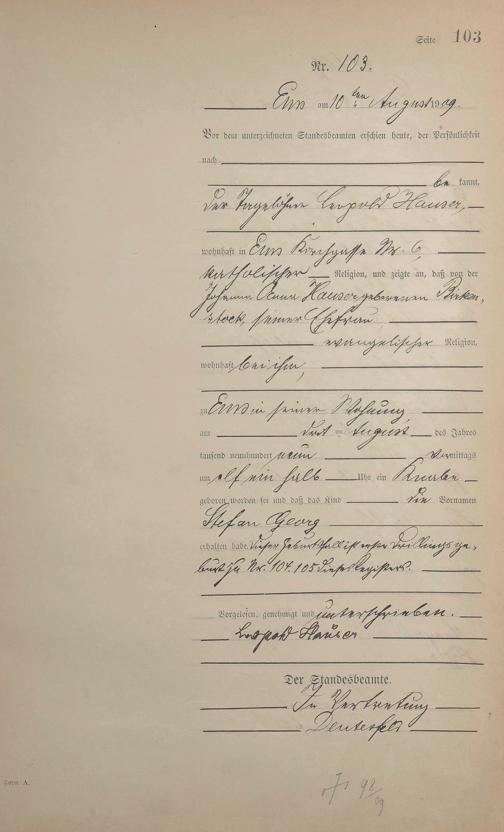 Seite 103
Nr. 103.
Ems am 10ten August 1909.
Vor dem unterzeichneten Standesbeamten erschien heute, der Persönlichkeit
nach
be kannt,
der Tagelöhner Leopold Hauser,
wohnhaft in Ems Kirchgasse Nr. 6,
katholischer Religion, und zeigte an, daß von der
Johanna Anna Hauser geborenen Birken-
stock, seiner Ehefrau
evangelischer Religion,
wohnhaft bei ihm,
zu Ems in seiner Wohnung
am August des Jahres
tausend neunhundert neun Vormittags
um elf ein halb Uhr ein Knabe
geboren worden sei und daß das Kind die Vornamen
Stefan Georg
erhalten habe. Dieser Geburtsfall ist erste Drillingsge-
burt zu Nr. 104. 105 dieses Registers.
Vorgelesen, genehmigt und unterschrieben.
Leopold Hauser
Der Standesbeamte.
In Vertretung
Form. A.